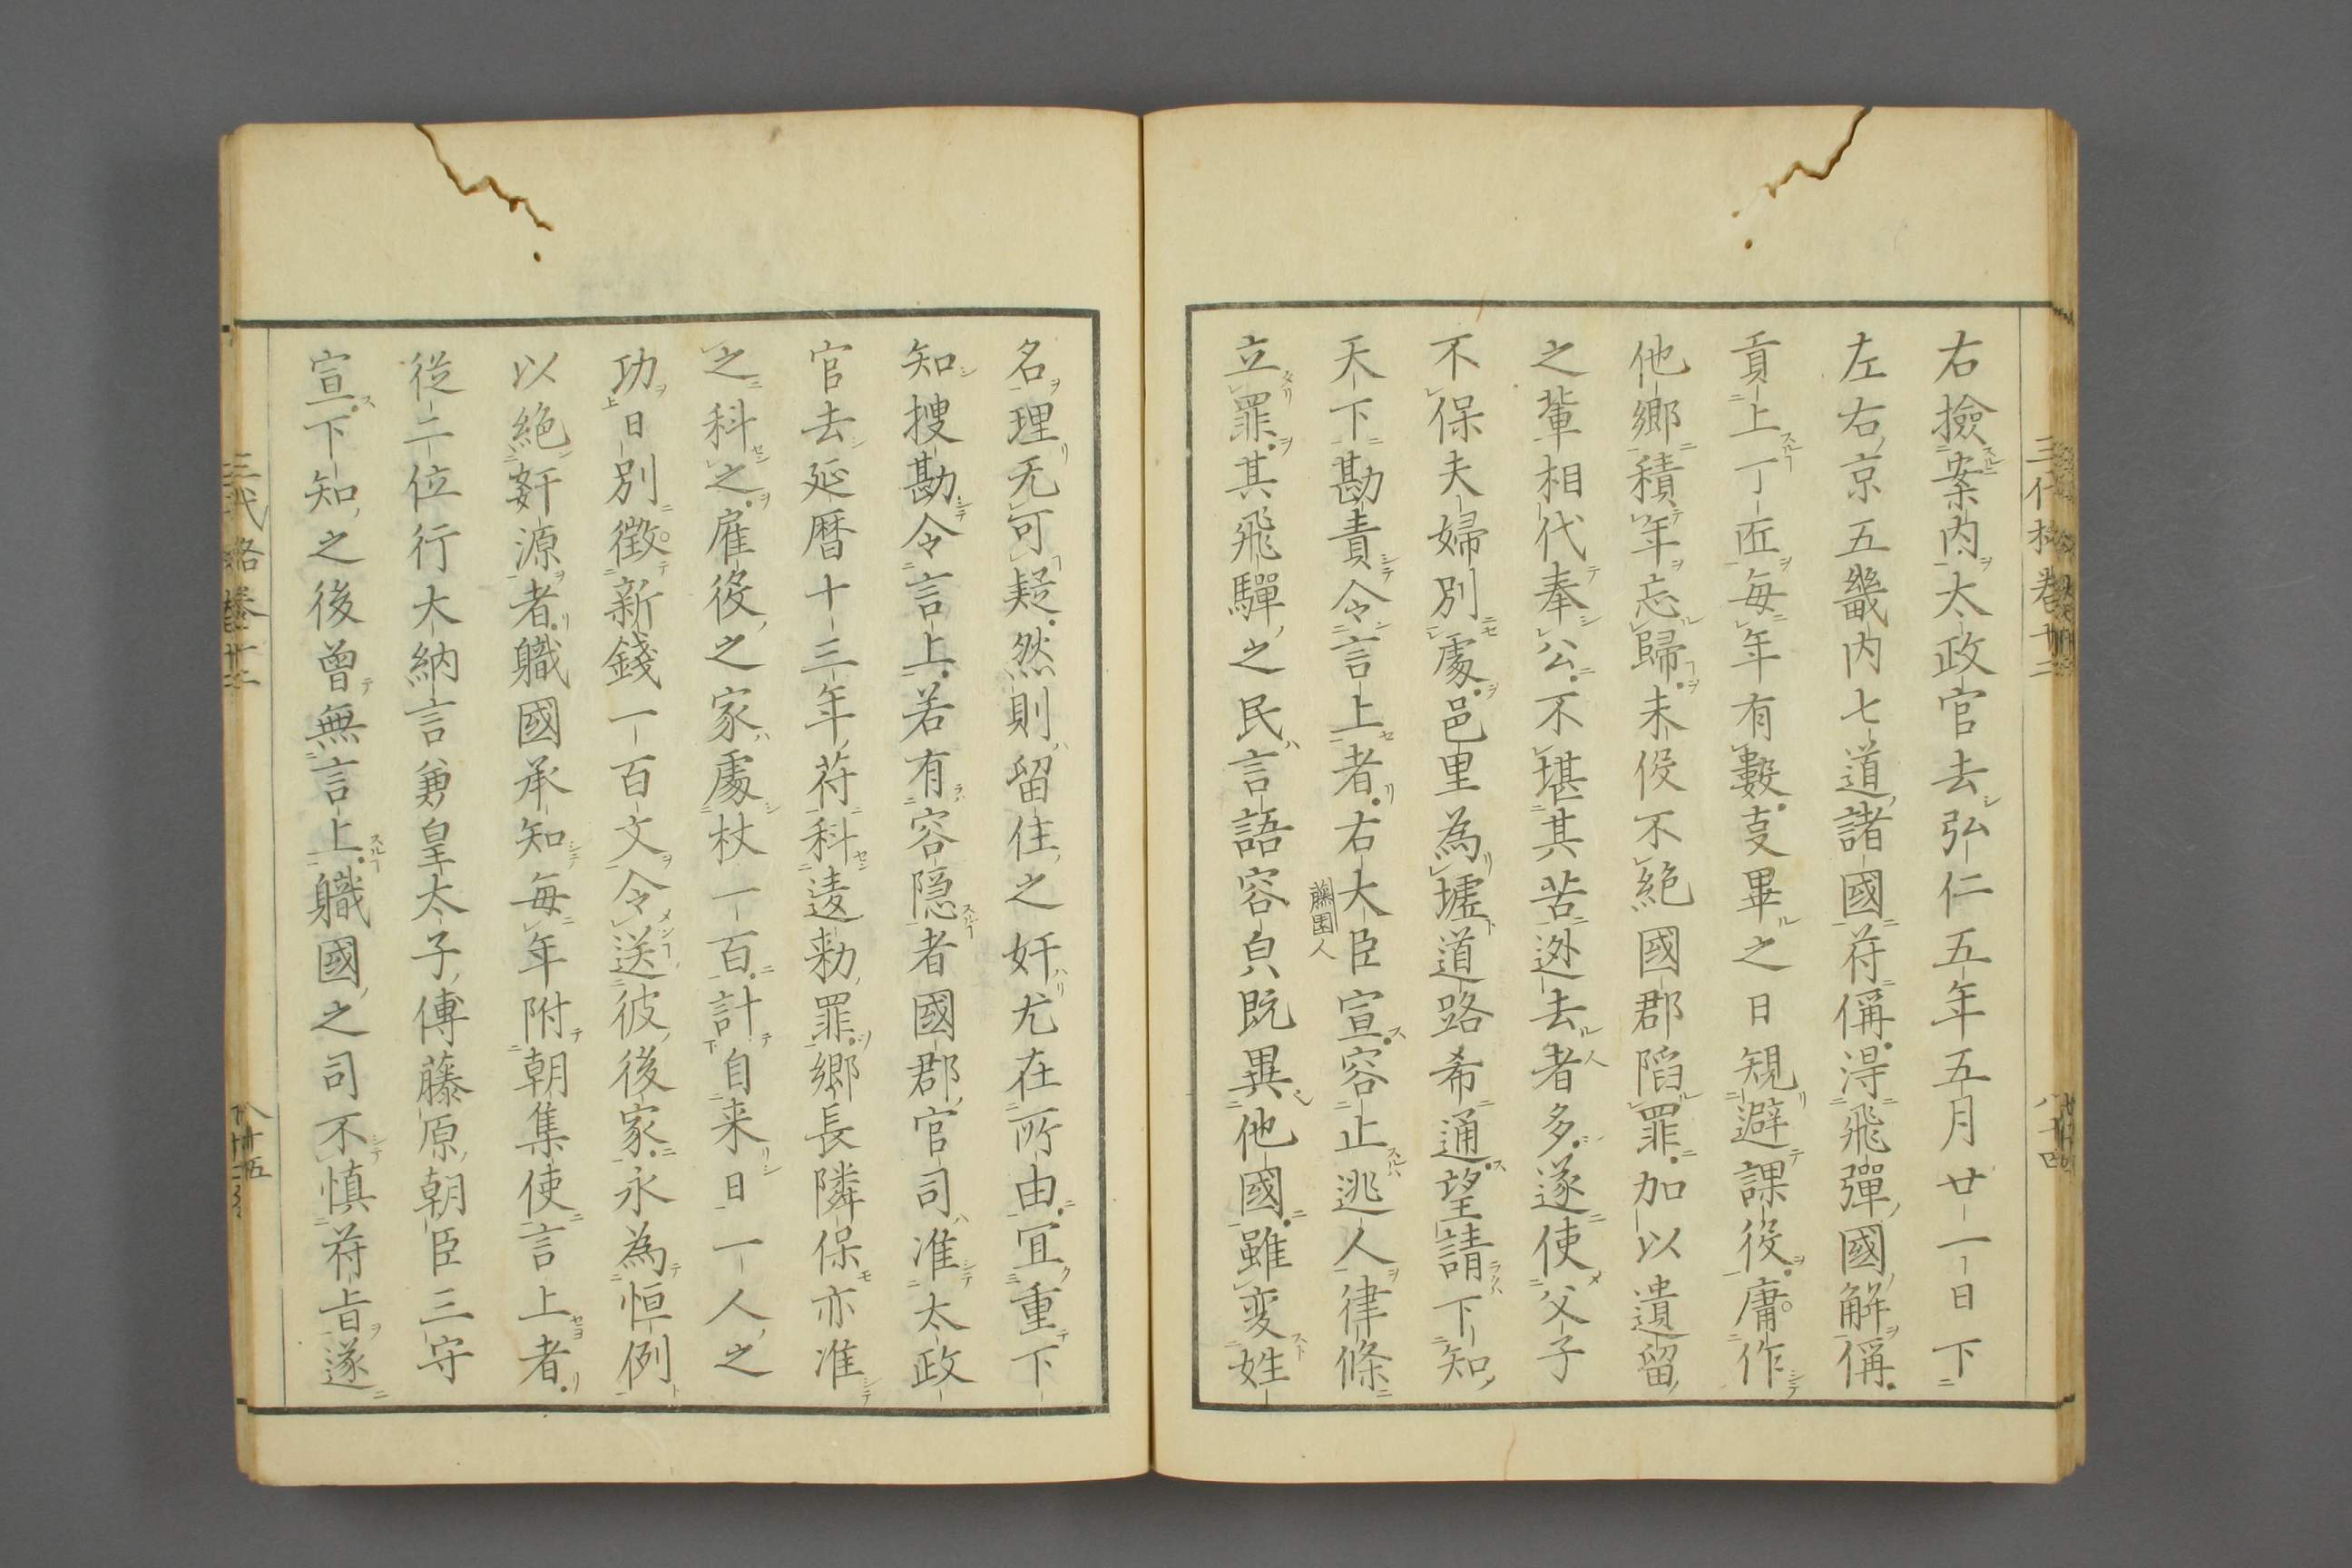 右撿案内太政官去弘仁五年五月廿一日下
左右京五畿内七道諸國苻偁得飛彈國解偁
貢上丁匠毎年有數㕝畢之日規避課役庸作
他郷積年忘歸未役不絶國郡陷罪加以遺留
之輩相代奉公不堪其苦迯去者多遂使父子
不保夫婦別處邑里為墟道路希通望請下知
天下勘責令言上者右大臣宣容止逃人律條
藤園人
立罪其飛驒之民言語容皃既異他國雖変姓
名理无可疑然則留住之奸尤在所由冝重下
知搜勘令言上若有容隠者國郡官司准太政
官去延暦十三年苻科違勅罪郷長隣保亦准
之科之雇役之家處杖一百計自来日一人之
功日別徴新錢一百文令送彼後家永為恒例
以絶姧源者職國承知毎年附朝集使言上者
從二位行大納言兼皇太子傅藤原朝臣三守
宣下知之後曾無言上職國之司不慎苻㫖遂